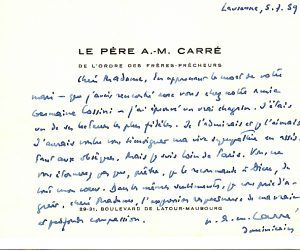 Lausanne, 5.7.59
LE PÈRE A.-M. CARRÉ
DE L'ORDRE DES FRÈRES-PRÊCHEURS
Chère Madame, En apprenant la mort de votre
mari – que j'avais rencontré avec vous chez notre amie
Germaine – j'ai éprouvé un vrai chagrin. J'étais
un de ses lecteurs les plus fidèles. Je l'admirais et je l'aimais
J'aurais voulu vous témoigner ma vive sympathie en
aux obsèques. Mais je suis loin de Paris. Vous, ne
vous étonnerez pas que, prêtre, je le recommande à Dieu, de
tout mon cœur. Dans les mêmes sentiments, je vous prie d'a-
gréer, chère Madame, l'expression respectueuse de ma vraie
et profonde compassion.
a. m. Carré
dominicain
29-31, BOULEVARD DE LATOUR-MAUBOURG